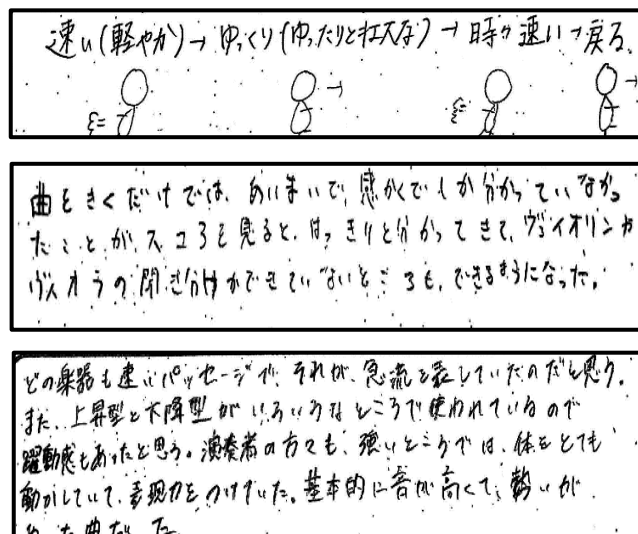 速い(軽やか)→ゆっくり(ゆったりと壮大な)→時々速い→戻る。
曲をきくだけでは、あいまいで、感かくでしか分かっていなかっ
たことが、スコアを見ると、はっきりと分かってきて、ヴァイオリンか
ヴィオラの聞き分けができていないところも、できるようになった。
どの楽器も速いパッセージで、それが、急流を表していたのだと思う。
また、上昇型と下降型がいろいろなところで使われているので
躍動感もあったと思う。演奏者の方々も、強いところでは、体をとても
動かしていて、表現力をつけていた。基本的に音が高くて、勢いが
あった曲だった